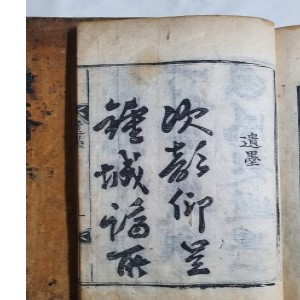 遺墨
次韻仰呈
鍾城謫所